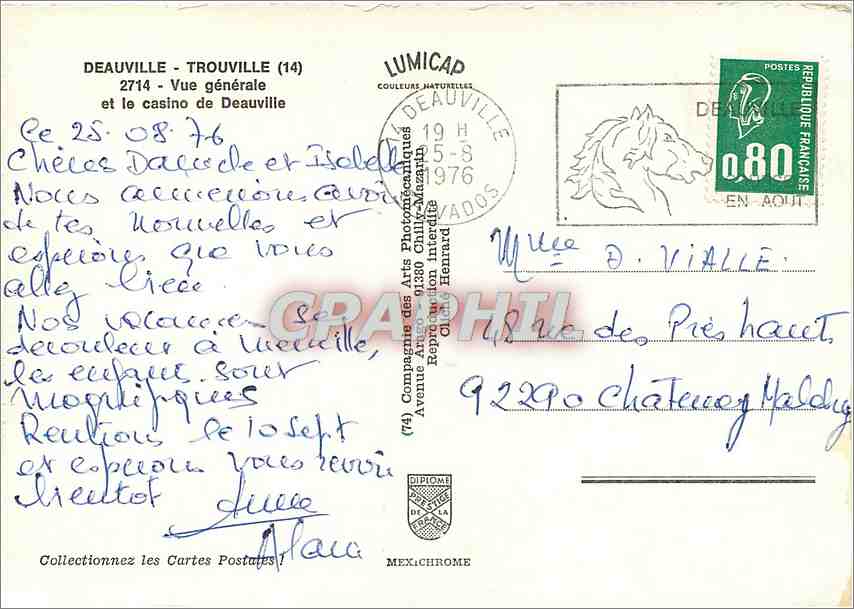 DEAUVILLE - TROUVILLE (14)
2714 - Vue générale
et le casino de Deauville
Ce 25.08.76
Chères Danièle et Isabelle
Nous aimerions avoir
de tes nouvelles et
espérons que vous
allez bien.
Nos vacances se
déroulent à merveille,
les enfants sont
magnifiques
Rentrons le 10 sept
et espérons vous revoir
bientot
Anne
Alain
Collectionnez les Cartes Postales !
LUMICAP
COULEURS NATURELLES
14 DEAUVILLE
19 H
25-8
1976
CALVADOS
(74) Compagnie des Arts Photomécaniques
Avenue Arago - 91380 Chilly-Mazarin
Reproduction interdite
Cliché Henrard
DIPLOME
PRESTIGE
DE LA
FRANCE
MEXICHROME
DEAUVILLE
EN AOUT
POSTES
REPUBLIQUE FRANÇAISE
0,80
Mme D. VIALLE
48 rue des Près hauts
92290 Châtenay Malabry
CRAPHIL